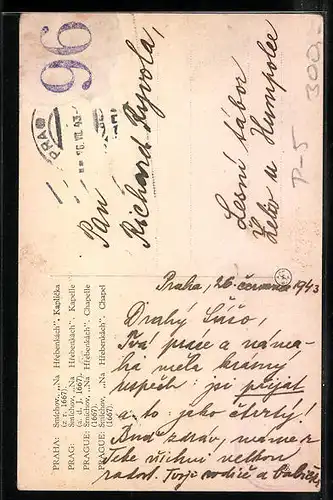 96
300,-
P-5
PRAG
26 VII 93
Pán
Richard Ryvola,
Lesní tábor
Želiv u Humpolce
PRAHA: Smíchov, „Na Hřebenkách“, Kaplička
(z r. 1667).
PRAG: Smíchov, „Na Hřebenkách“, Kapelle
(a. d. J. 1667).
PRAGUE: Smíchov, „Na Hřebenkách“, Chapelle
(1667).
PRAGUE: Smíchov, „Na Hřebenkách“, Chapel
(1667).
Praha, 26. července 1943
Drahý
Tvá práce a náma-
ha měla krásný
úspěch: jsi přijat
a to: jako čtvrtý!
Buď zdráv, máme z
Tebe všichni velkou
radost. Tvoji rodiče a babička.